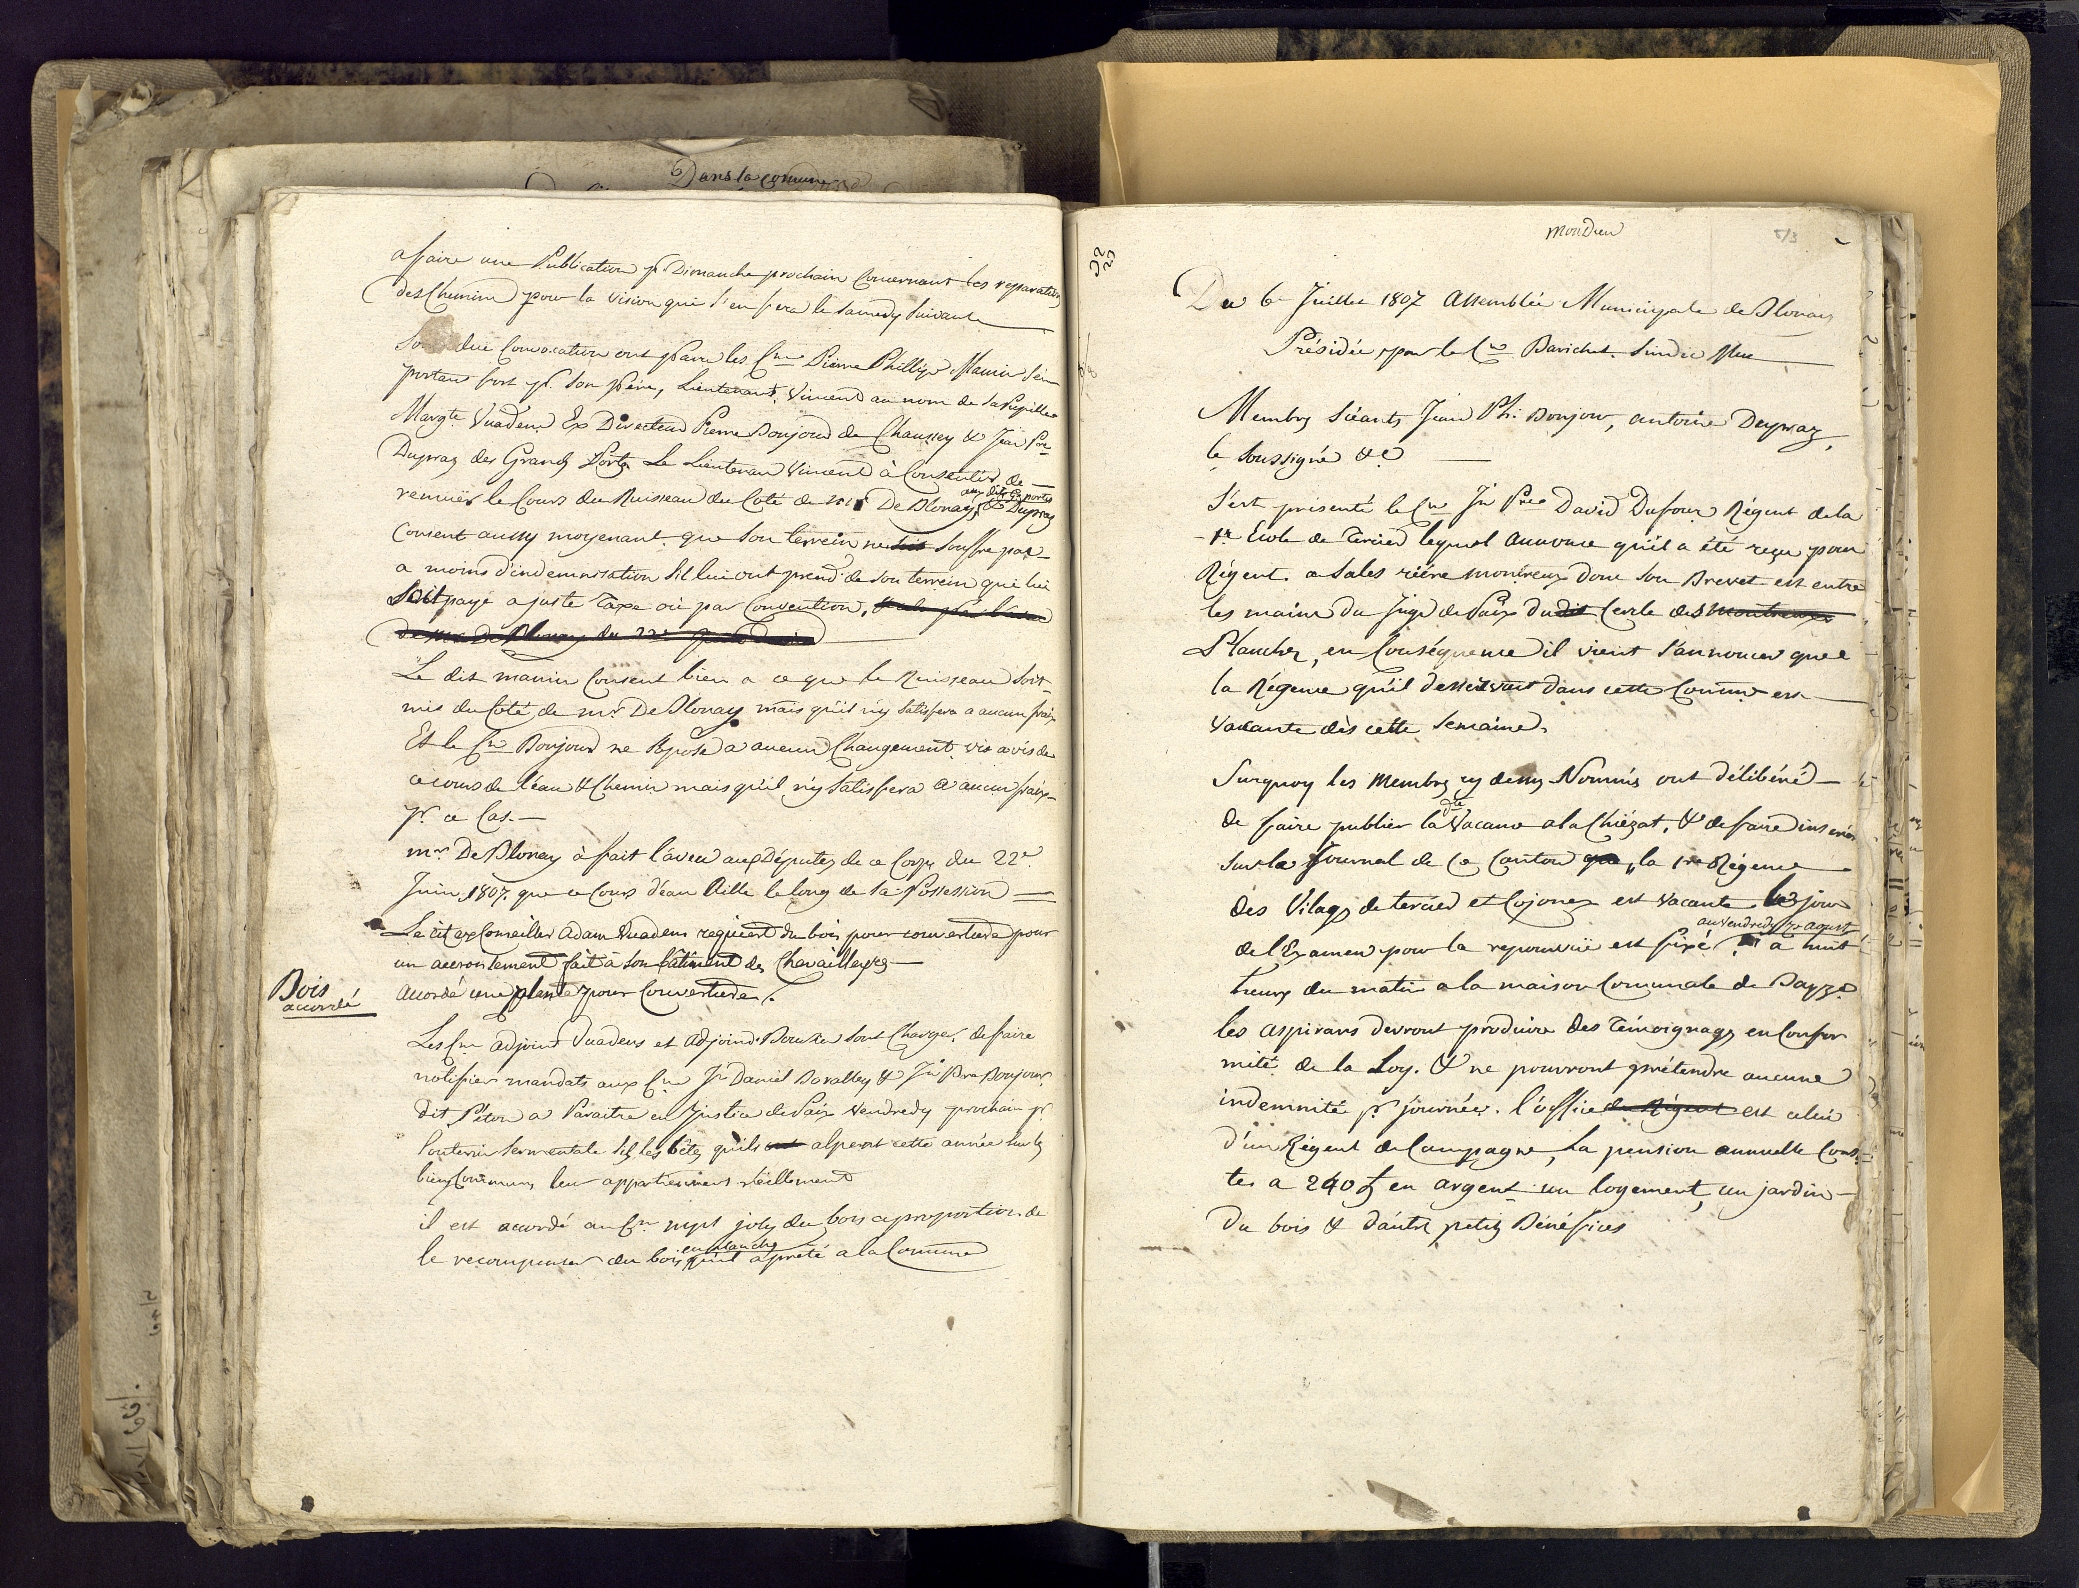 Dans la comune
a faire une Publication pr Dimanche prochain Concernant les reparations
des Chemins pour la vision qui s'en fera le samedy suivant
due Convocation ont paru les Cns Pierre Phillipe Mamin
portant fort pr. son père, Lieutenant Vincend au nom de sa Pupille
Margte Vuadens Ex Directeur Pierre Bonjour de Chaussey & Jean Pre
Dupraz des Grands Ports Le Lieutenant Vincent à Consentir de
remuër le Cours du Ruisseau du Coté de Mr De Blonay, & Dupraz
aux dits Gds ports
Consent aussy moyenant que son terrein ne soit souffre pas
a moins d'indemnisation s'il lui ont prend de son terrein qui lui
Soit payé a juste Taxe où par Convention,
de Mr De Blonay du 22e
Le dit mamin Consent bien a ce que le Ruisseau soit
mis du Coté de mr De Blonay mais qu'il n'y satisfera a aucun frais
Et le Cn Bonjour ne s'opose a aucun Changement vis a vis de
ce cours de l'éau & Chemin mais qu'il n'y satisfera a aucun frais
pr. ce Cas.
mr De Blonay à fait l'aveu aux Députez de ce Corps du 22e
Juin 1807. que ce Cours d'éau Aille le long de sa Possession
Le cit ex Conseiller Adam Vuadens requiert du bois pour couverture pour
un accroutement fait à son bâtiment des Chevailleyres
Bois
accordé
accordé une plante pour Couverture.
Les Cns adjoint Vuadens et Adjoind Bonjour sont Chargés de faire
notifier mandats aux Cns Jn Daniel Dovalley & Jn Pre Bonjour
dit Péton a Paraitre en Justice de Paix Vendredy prochain pr
soutenir sermentale si les bêtes qu'ils ont alpent cette année sur les
biens Communs leur appartiennent réellement
il est accordé au Cn joly du bois a proportion de
le recompenser du bois qu'il a preté a la Commune
en planche
32
23
mondieu
Du 6e Juillet 1807 Assemblée Municipale de Blonay
Présidée par le Cn Barichet. Sindic
Membres Siéants Jean Ph. Bonjour, antoine Dupraz,
le soussigné &c
S'est présenté le Cn Jn Pre David Dufour Régent de la
1re Ecole de Tercier lequel annonce qu'il a été reçu pour
Régent a Sales riére montreux dont son Brevet est entre
les mains du Juge de Paix dudit Cercle des montreux
Planches, en Conséquence il vient s'annoncer que
la Régence qu'il desservait dans cette Comune est
vacante dès cette semaine.
Surquoy les Membres cy dessus Nommés ont délibéré
de faire publier la dte Vacance a la Chiézat, & de faire inserér
sur le Journal de ce Canton que „la 1re Régence
des Vilages de tercier et Cojonex est vacante les jour
au Vendredy 7e aoust
de l'Examen pour la repourvüe est fixé à huit
heures du matin a la maison Comunale de Bayse
les aspirans devront produire des témoignages en Confor
mité de la Loy. & ne pourront prétendre aucune
indemnité pr journée. l'office du Régent est celui
d'un Régent de Campagne, La pension annuelle Cons
te a 240 £ en argent un logement, un jardin
Du bois & d'autres petits Bénéfices